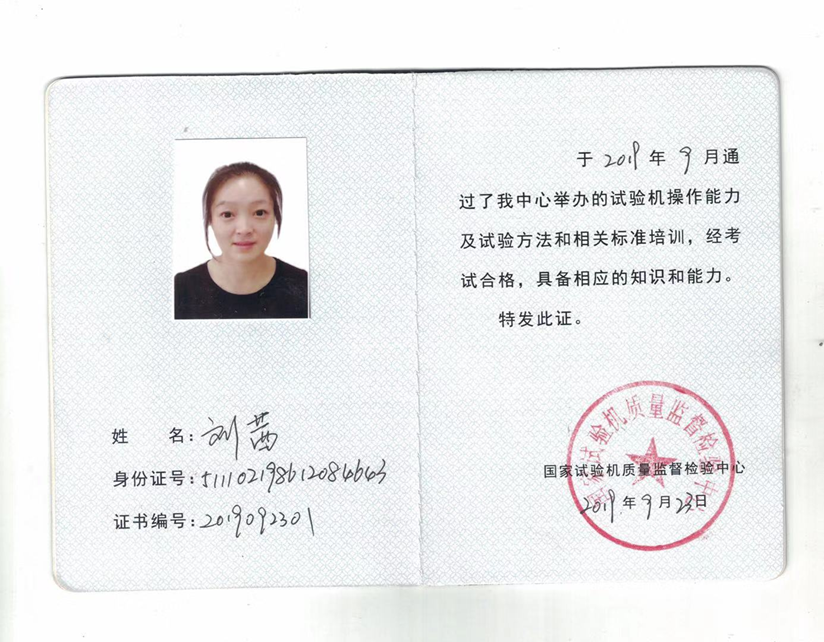 姓 名：刘茜
身份证号：511102198612084643
证书编号：2019092301
于 2019 年 9 月通
过了我中心举办的试验机操作能力
及试验方法和相关标准培训，经考
试合格，具备相应的知识和能力。
特发此证。
国家试验机质量监督检验中心
国家试验机质量监督检验中心
2019年9月23日